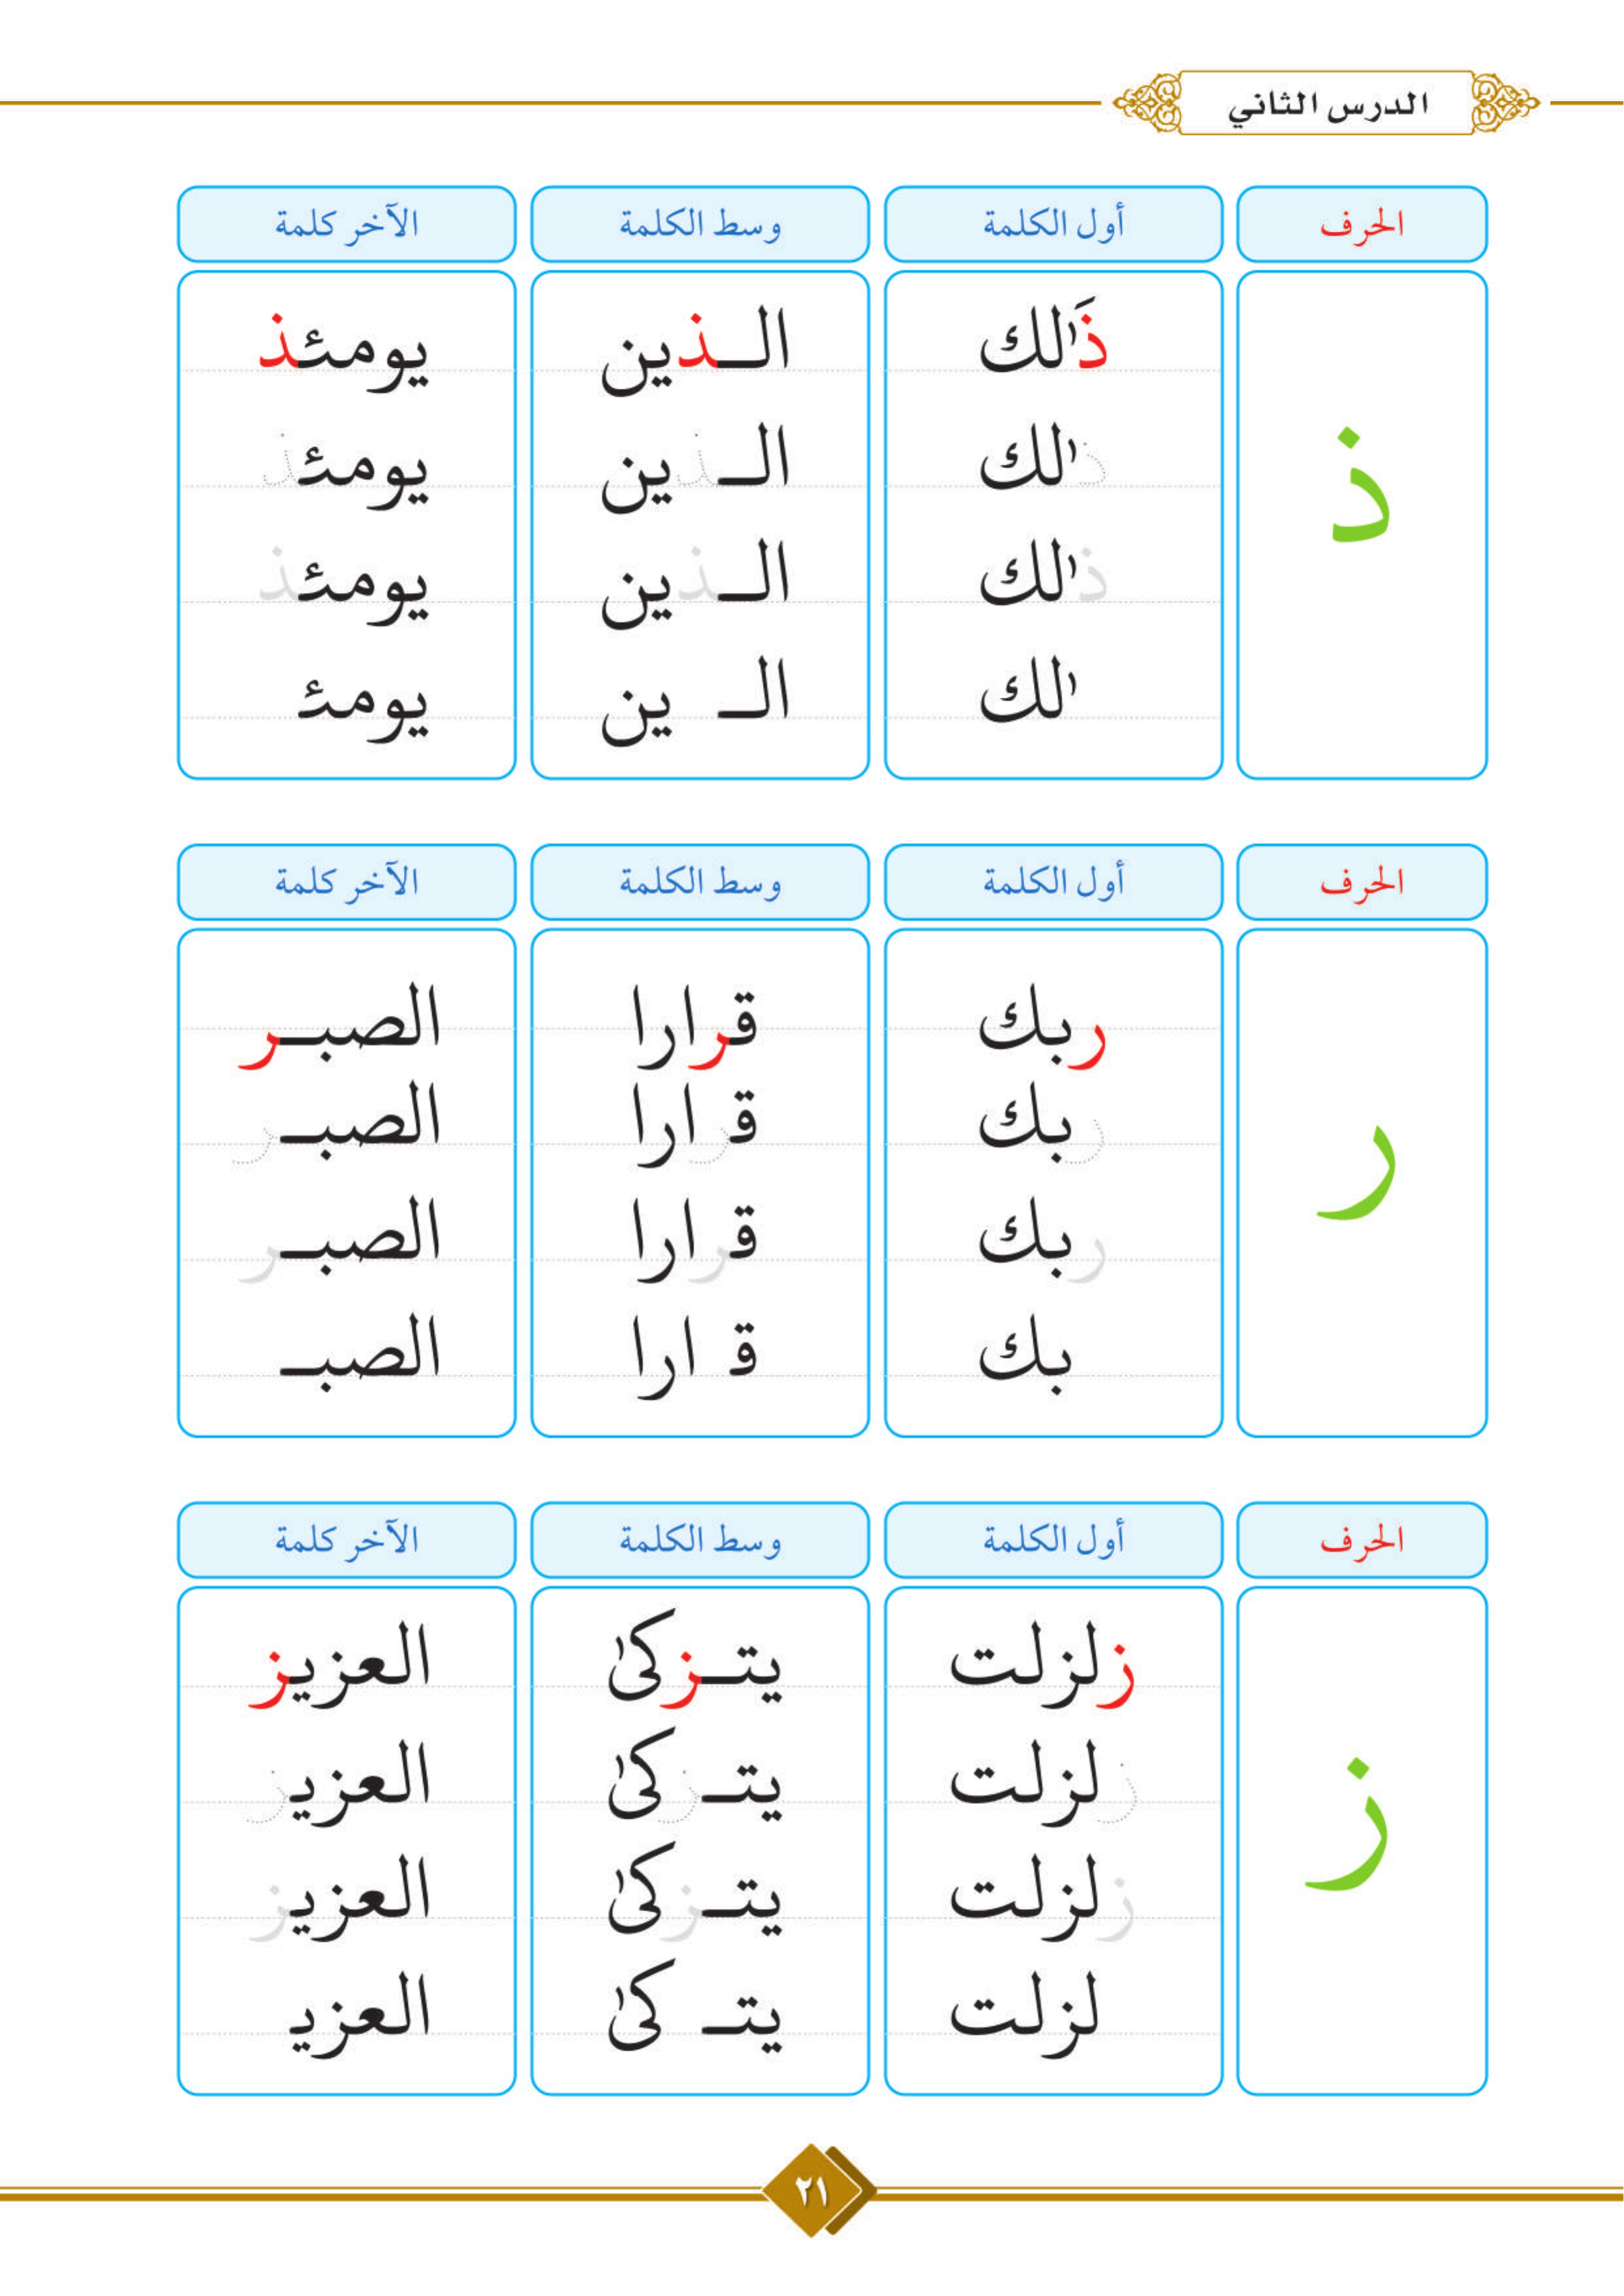 الدرس الثاني
الحرف أول الكلمة وسط الكلمة الآخر كلمة
ذ
ذَٰلك الـذين يومئذ
ذٰلك الـذين يومئذ
ذٰلك الـذين يومئذ
ٰلك الـ ين يومئـ
الحرف أول الكلمة وسط الكلمة الآخر كلمة
ر
ربك قرارا الصبـر
ربك قرارا الصبـر
ربك قرارا الصبـر
بك قـ ارا الصبـ
الحرف أول الكلمة وسط الكلمة الآخر كلمة
ز
زلزلت يتـزكىٰ العزيز
زلزلت يتـزكىٰ العزيز
زلزلت يتـزكىٰ العزيز
لزلت يتـ كىٰ العزيـ
٢١